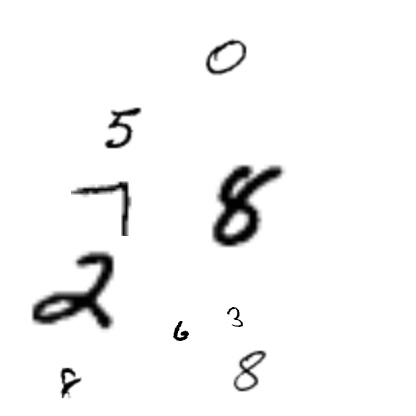 0
5
7 8
2
6 3
8 8